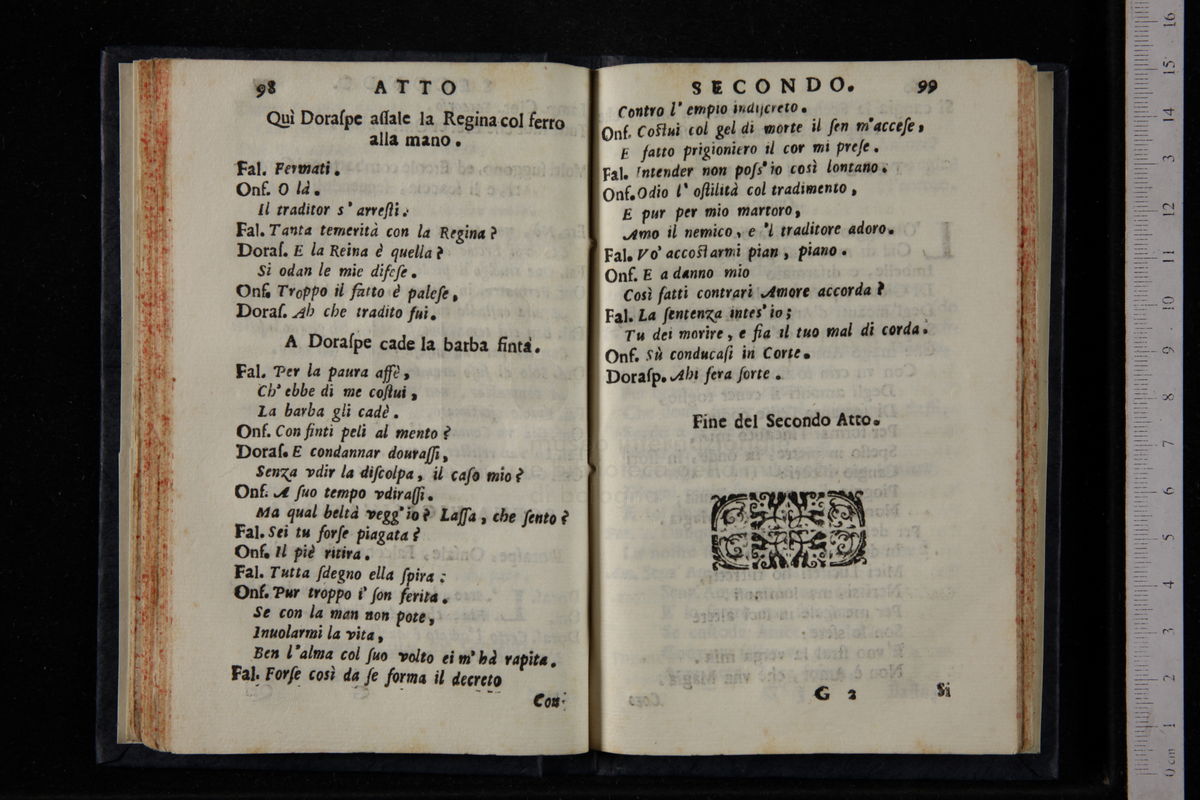 98 ATTO
Quì Doraſpe aſſale la Regina col ferro
alla mano.
Fal. Fermati.
Onf. O là.
Il traditor s' arreſti.
Fal. Tanta temerità con la Regina?
Doraſ. E la Reina è quella?
Si odan le mie difeſe.
Onf. Troppo il fatto è paleſe,
Doraſ. Ah che tradito fui.
A Doraſpe cade la barba finta.
Fal. Per la paura affè,
Ch' ebbe di me coſtui,
La barba gli cadè.
Onf. Con finti peli al mento?
Doraſ. E condannar douraſſi,
Senza vdir la diſcolpa, il caſo mio?
Onf. A ſuo tempo vdiraſſi.
Ma qual beltà vegg' io? Laſſa, che ſento?
Fal. Sei tu forſe piagata?
Onf. Il piè ritira.
Fal. Tutta ſdegno ella ſpira:
Onf. Pur troppo i' ſon ferita.
Se con la man non pote,
Inuolarmi la vita,
Ben l'alma col ſuo volto ei m' hà rapita.
Fal. Forſe così da ſe forma il decreto
Con-
SECONDO. 99
Contro l' empio indiſcreto.
Onf. Coſtui col gel di morte il ſen m'acceſe,
E fatto prigioniero il cor mi preſe.
Fal. Intender non poſs' io così lontano.
Onf. Odio l' oſtilità col tradimento,
E pur per mio martoro,
Amo il nemico, e 'l traditore adoro.
Fal. Vo' accoſtarmi pian, piano.
Onf. E a danno mio
Così fatti contrari Amore accorda?
Fal. La ſentenza inteſ' io;
Tu dei morire, e fia il tuo mal di corda.
Onf. Sù conducaſi in Corte.
Doraſp. Ahi fera ſorte.
Fine del Secondo Atto.
G 2 Si